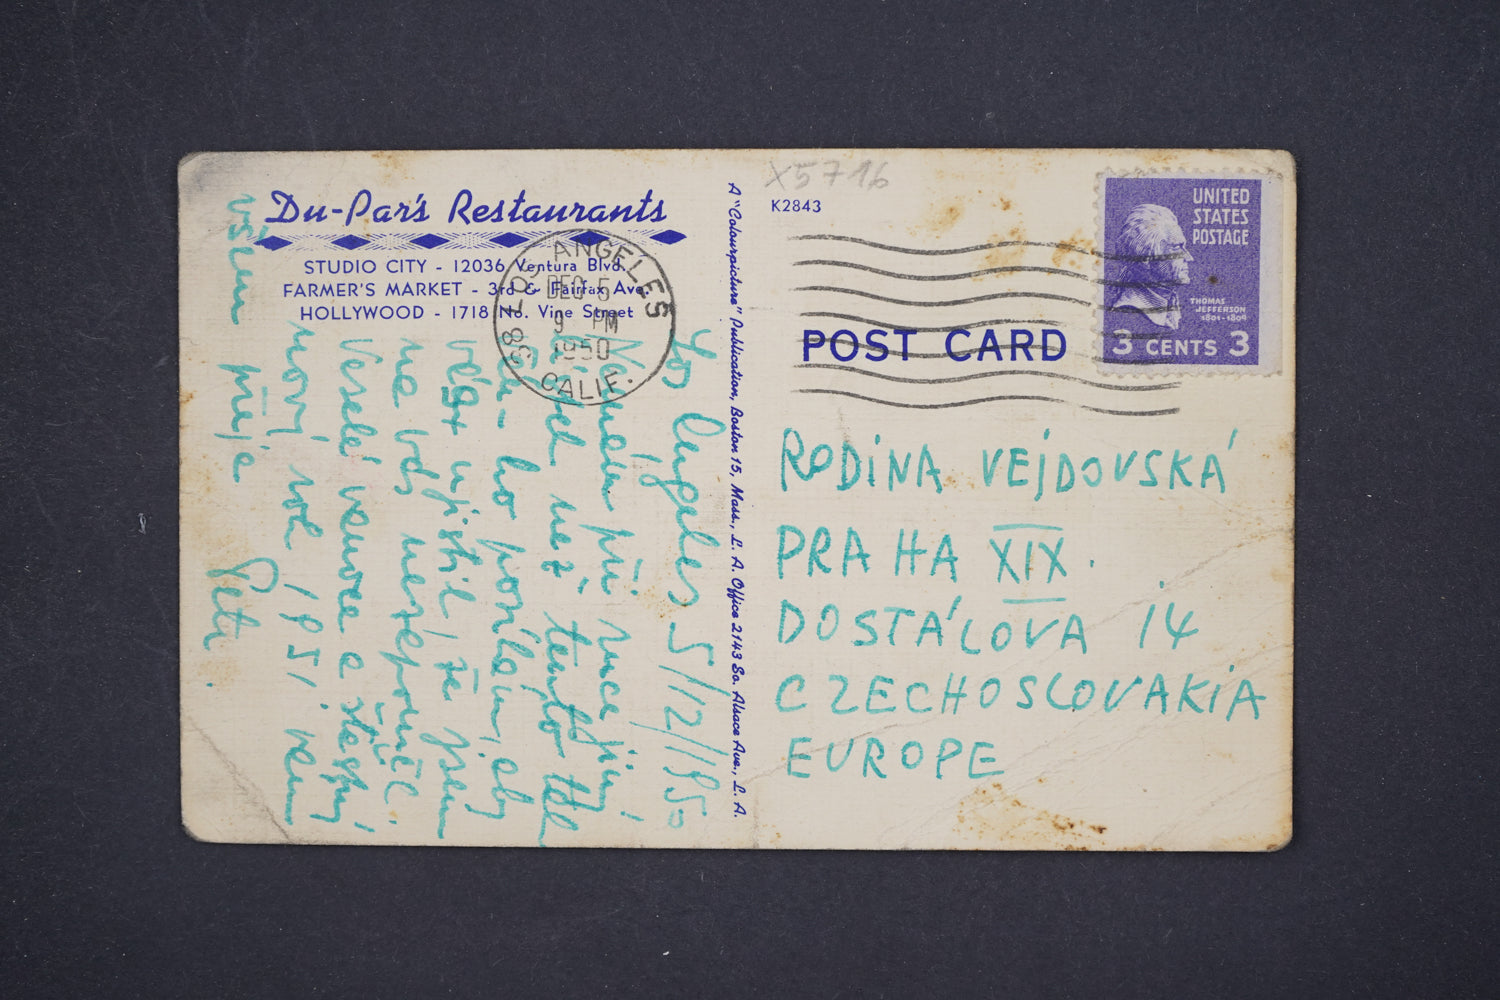 Du-Par's Restaurants
STUDIO CITY - 12036 Ventura Blvd.
FARMER'S MARKET - 3rd & Fairfax Ave.
HOLLYWOOD - 1718 No. Vine Street
LOS ANGELES 38
CALIF.
DEC 5
9 PM
1950
Los Angeles 5/12/1950
Nemám při ruce jiný
než tento
ho posílám, aby
vás ujistil, že jsem
na vás nezapomněl.
Veselé vánoce a šťastný
nový rok 1951 vám
všem přeje
Petr.
A "Colourpicture" Publication, Boston 15, Mass., L. A. Office 2143 So. Alsace Ave., L. A.
X5716
K2843
UNITED
STATES
POSTAGE
THOMAS
JEFFERSON
1801-1809
3 CENTS 3
POST CARD
RODINA VEJDOVSKÁ
PRAHA XIX.
DOSTÁLOVA 14
CZECHOSLOVAKIA
EUROPE